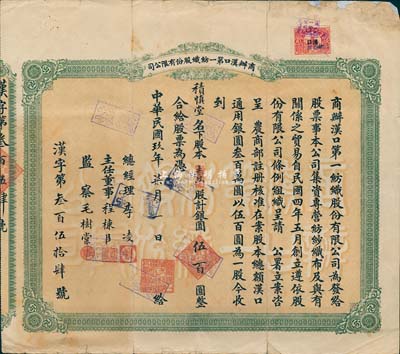 商辦漢口第一紡織股份有限公司
商辦漢口第一紡織股份有限公司為發給
股票事本公司集資專營紡紗織布及與有
關係之貿易自民國四年五月創立遵依股
份有限公司條例組織呈請 公署立案咨
呈 農商部註册核准在案股本總額漢口
通用銀圓叁百萬圓以伍百圓為一股今收
到
積慎堂名下股本壹股計銀圓伍百圓整
合給股票為據
中華民國玖年柒月 日 給
總經理李凌
主任董事程棟臣
監察毛樹棠
漢字第叁百伍拾肆號
漢字第叁百伍肆號